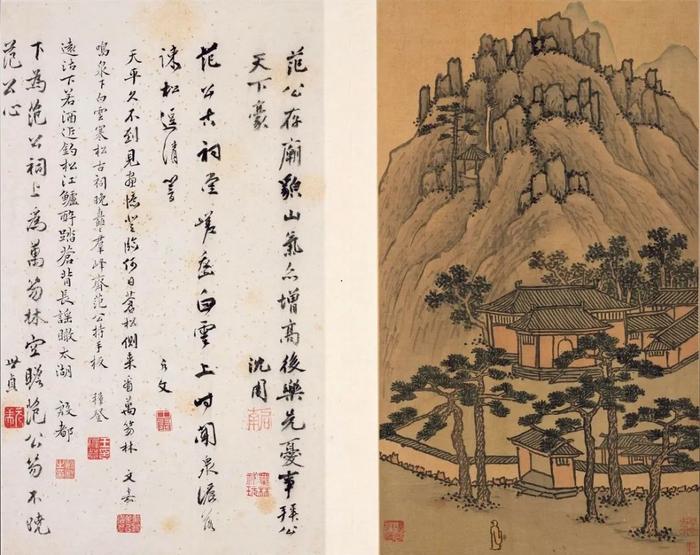 范公存廟貌山氣亦增高後樂先憂事拜公
天下豪 沈周
范公古祠堂嵯峨白雲上時聞泉澹落
疎松遞清響 允文
天平久不到見畫憶登臨何日蒼松側來看萬笏林 文嘉
鳴泉下白雲寒松古祠晚矗矗羣峰齊范公持手板 穉登
遠沽下若酒近釣松江鱸醉踏蒼背長謠瞰太湖 殷都
下為范公祠上為萬笏林空瞻范公笏不曉
范公心 世貞